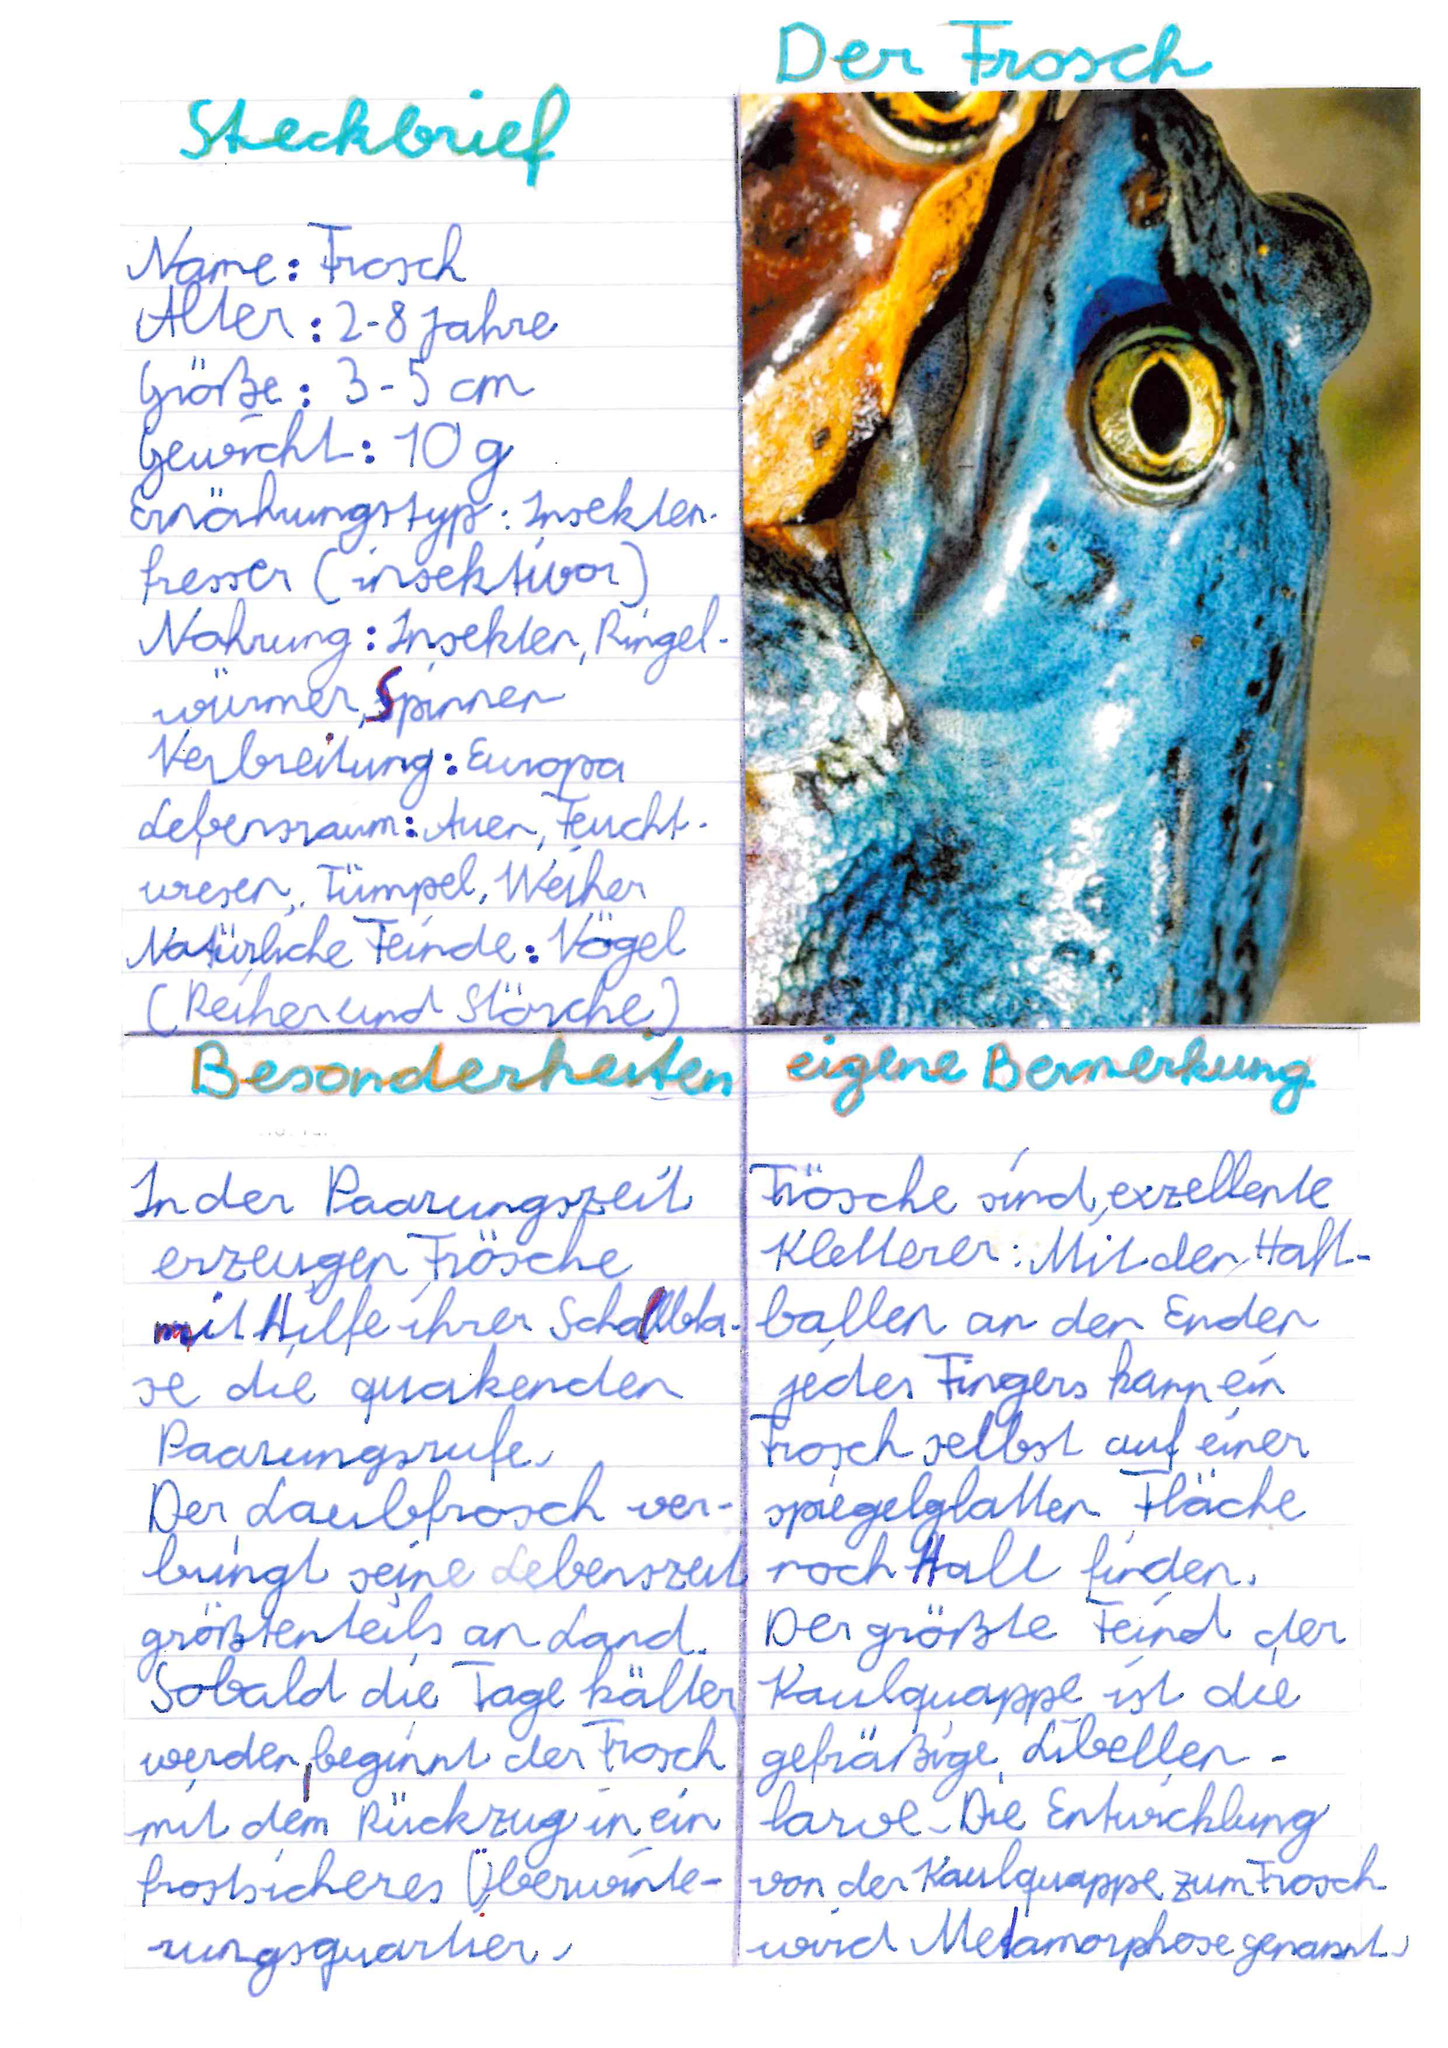 Der Frosch
Steckbrief
Name: Frosch
Alter: 2-8 Jahre
Größe: 3-5 cm
Gewicht: 10 g
Ernährungstyp: Insekten-
fresser (insektivor)
Nahrung: Insekten, Ringel-
würmer, Spinnen
Verbreitung: Europa
Lebensraum: Auen, Feucht-
wiesen, Tümpel, Weiher
Natürliche Feinde: Vögel
(Reiher und Störche)
Besonderheiten
In der Paarungszeit
erzeugen Frösche
mit Hilfe ihrer Schallbla-
se die quakenden
Paarungsrufe.
Der Laubfrosch ver-
bringt seine Lebenszeit
größtenteils an Land.
Sobald die Tage kälter
werden, beginnt der Frosch
mit dem Rückzug in ein
frostsicheres Überwinte-
rungsquartier.
eigene Bemerkung
Frösche sind exzellente
Kletterer: Mit den Haft-
ballen an den Enden
jedes Fingers kann ein
Frosch selbst auf einer
spiegelglatten Fläche
noch Halt finden.
Der größte Feind der
Kaulquappe ist die
gefräßige Libellen-
larve. Die Entwicklung
von der Kaulquappe zum Frosch
wird Metamorphose genannt.